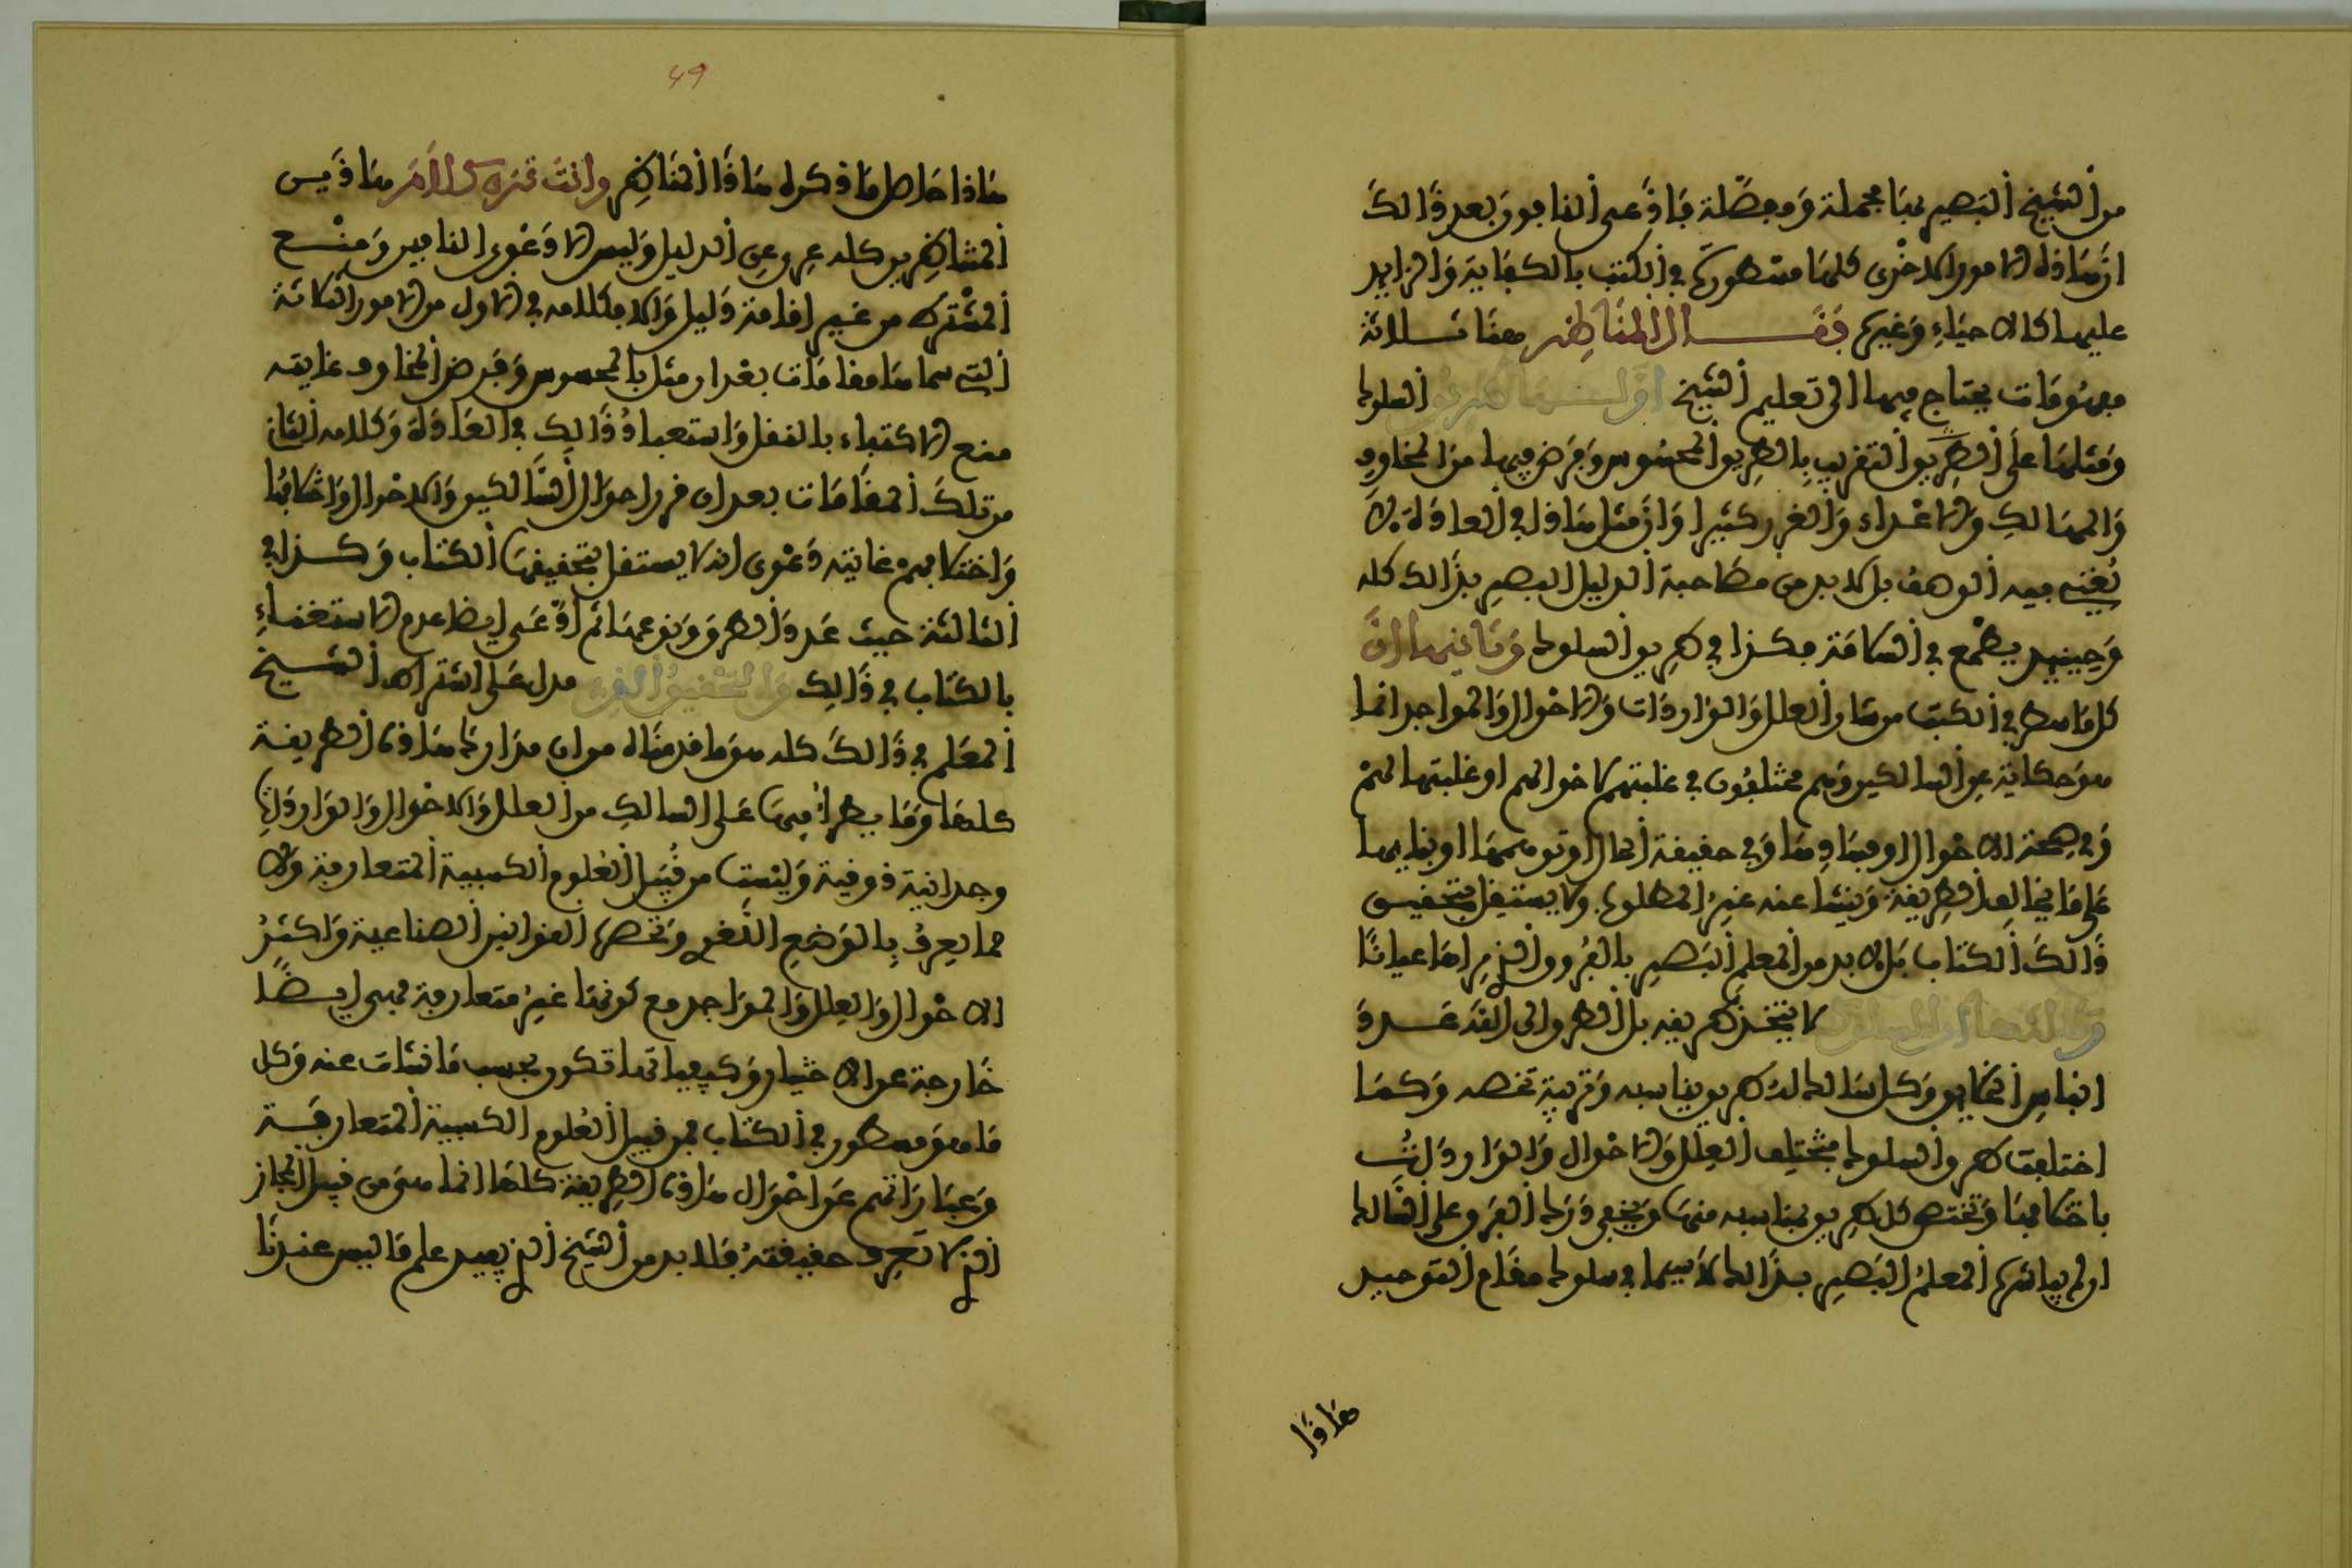 من الشيخ البصير بها مجملة ومفصلة فادعى النافون بعد ذالك
ان هاذه الامور الاخرى كلها مسطورة في الكتب بالكفاية والزايد
عليها كالاحياء وغيره فقال المناظر هنا ثلاثة
مصنوفات يحتاج فيها الى تعليم الشيخ السلوك
ومثلها على الطريق التقريب بالطريق المحسوس وفرض فيها من المخاوف
والمهالك والاعداء والغرر كثيرا وان مثل هاذا في العادة لا
يغني فيه الوصف بل لا بد من مصاحبة الدليل البصير بذالك كله
وحينيد يطمع في السلامة فكذا في طريق السلوك وثانيها ان
كل ما سطر في الكتب من شان العلل والواردات والاحوال والمواجد انما
هو حكاية عن السالكين وهم مختلفون في غلبتهم لاحوالهم او غلبتها لهم
وفي صحة الاحوال او فسادها وفي حقيقة الحال او توهمها او بنايها
على ما يخالف الطريقة وينشا عنه غير المطلوب ولا يستقل بتحقيق
ذالك الكتاب بل لا بد من المعلم البصير بالفروق الذي مراها عيانا
وثالثها ان السلوك لا يتخذ طريقه بل الطرق الى الله عدد
انفاس الخلايق وكل سالك له طريق يناسبه وتربية تخصه وكما
اختلفت طرق السلوك تختلف العلل والاحوال والواردات
باحكامها وتختص كل طريق بما يناسبه منها ويخفى درك الفرق على السالك
ان لم يباشره المعلم البصير بذالك لا سيما في سلوك مقام التوحيد
هاذا
49
هاذا حاصل ما ذكره هاذا المناظر وانت ترى كلام هاذين
المناظرين كله عري عن الدليل وليس الا دعوى النافين ومنع
المشترط من غير اقامة دليل والا فكلامه في الاول من الامور الثلاثة
التي سماها مقامات بعد ان مثل بالمحسوس وفرض المخاوف غايته
منع الاكتفاء بالنقل واستعباد ذالك في العادة وكلامه الثاني
من تلك المقامات بعد ان قرر احوال السالكين والاحوال واحكامها
واختلافهم غايته دعوى انه لا يستقل بتحقيقها الكتاب وكذا في
الثالثة حيث عدد الطرق ونوعها ثم ادعى ايضا عدم الاستغناء
بالكتاب في ذالك والتحقيق الذي يدل على اشتراط الشيخ
المعلم في ذالك كله هو ما قدمناه من ان مدارك هاذه الطريقة
كلها وما يطرا فيها على السالك من العلل والاحوال والواردات
وجدانية ذوقية وليست من قبيل العلوم الكسبية المتعارفة ولا
مما يعرف بالوضع اللغوي وتحصره القوانين الصناعية واكثر
الاحوال والعلل والمواجد مع كونها غير متعارفة فهي ايضا
خارجة عن الاختيار وكيفياتها تكون بحسب ما نشات عنه وكل
ما هو مسطور في الكتاب فمن قبيل العلوم الكسبية المتعارفة
وعباراتهم عن احوال هاذه الطريقة كلها انما هي من قبيل المجاز
الذي لا تعرف حقيقته فلا بد من الشيخ الذي يفيد علم ما ليس عندنا